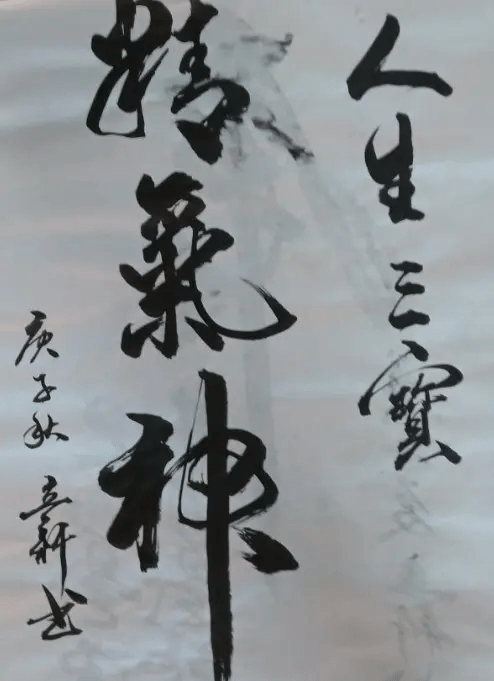 人生三寶
精氣神
庚子秋 立新书